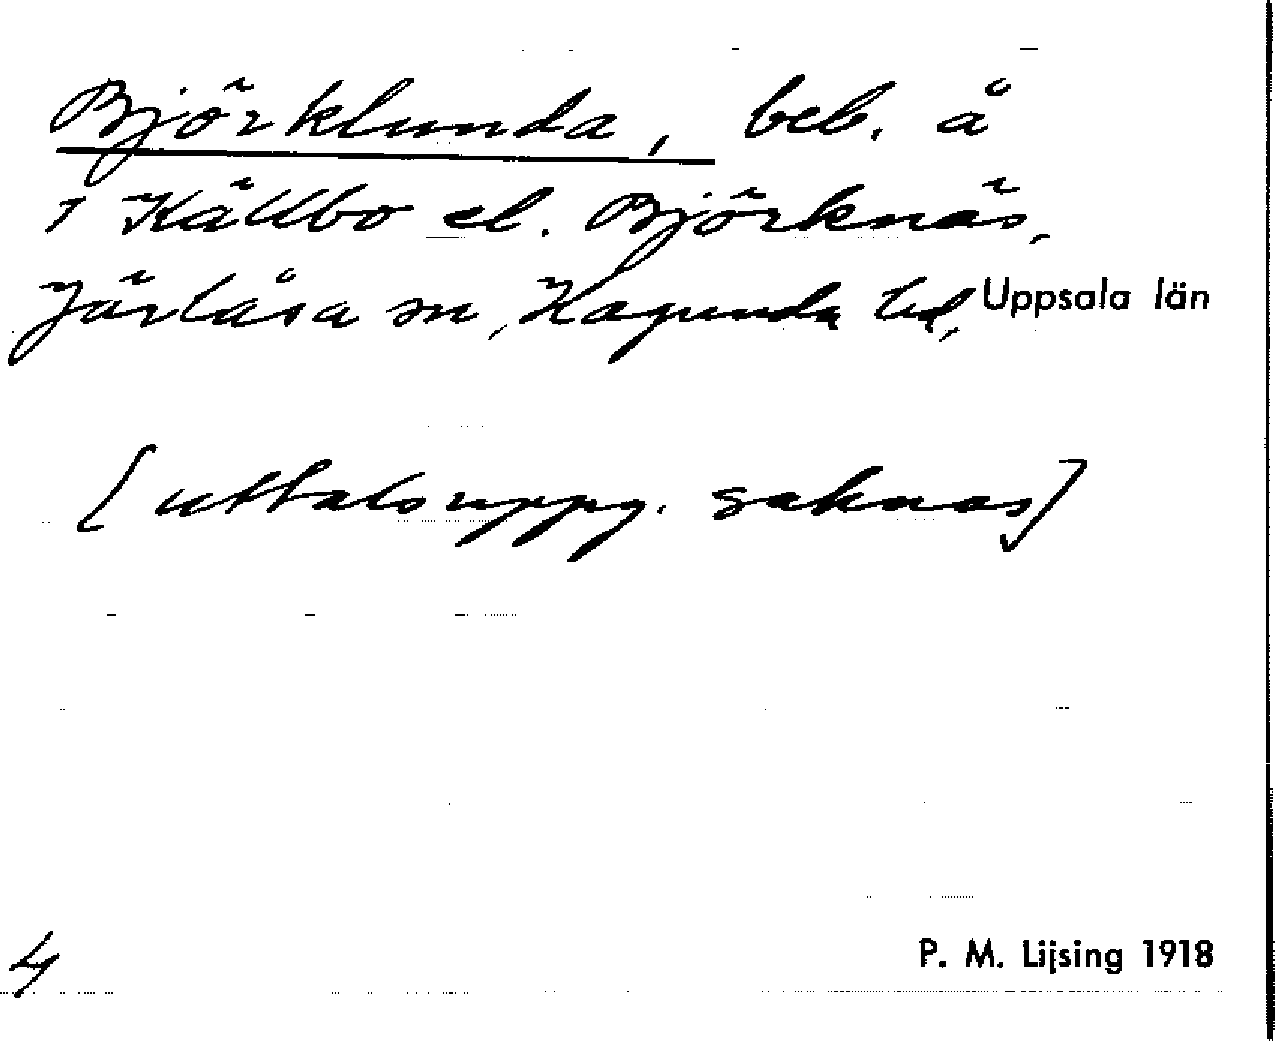 Björklunda, beb. å
1 Källbo el. Björknäs,
Järlåsa sn, Hagunda hd, Uppsala län
[uttalsuppg. saknas]
4 P. M. Lijsing 1918